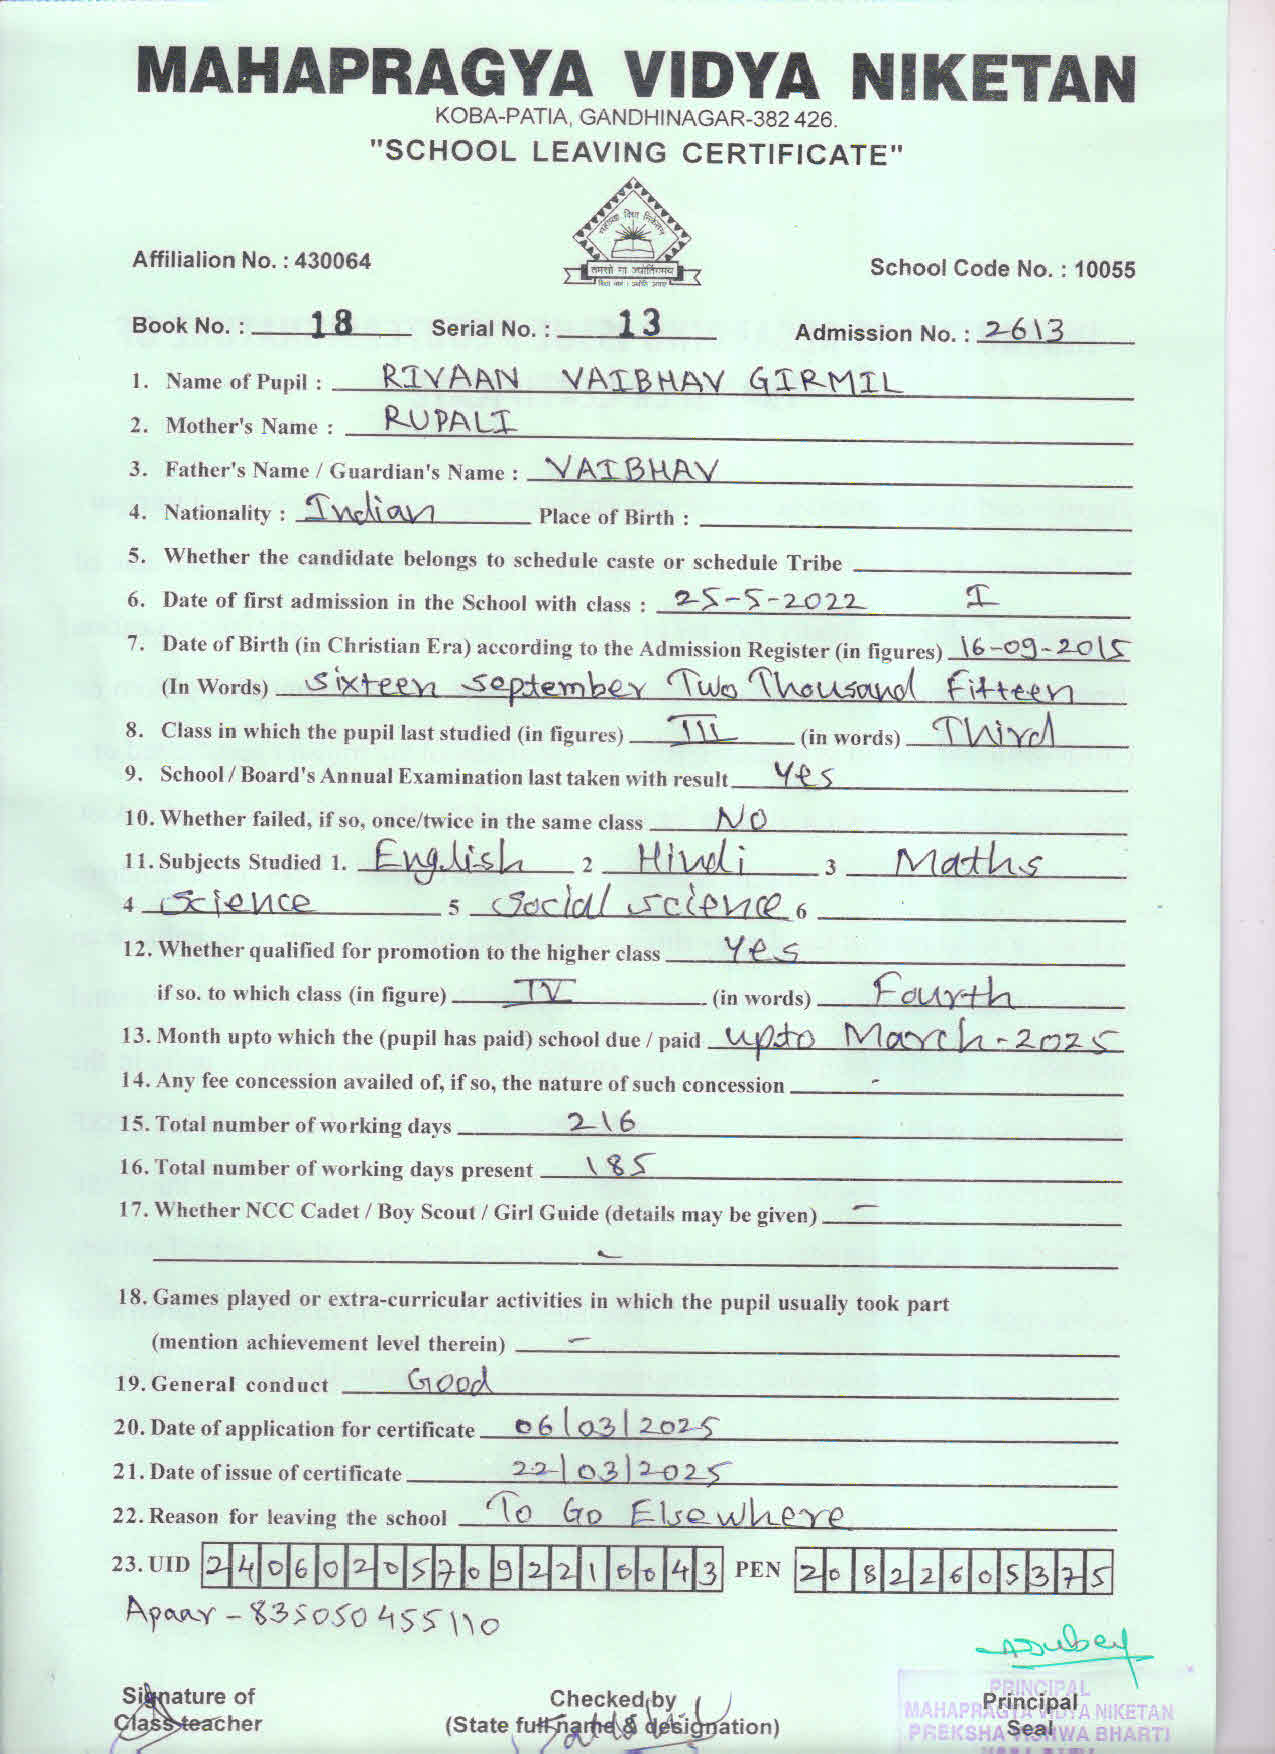 MAHAPRAGYA VIDYA NIKETAN
KOBA-PATIA, GANDHINAGAR-382 426.
"SCHOOL LEAVING CERTIFICATE"
महाप्रज्ञ विद्या निकेतन
तमसो मा ज्योतिर्गमय
Affilialion No. : 430064
School Code No. : 10055
Book No. : 18 Serial No. : 13 Admission No. : 2613
1. Name of Pupil : RIVAAN VAIBHAV GIRMIL
2. Mother's Name : RUPALI
3. Father's Name / Guardian's Name : VAIBHAV
4. Nationality : Indian Place of Birth :
5. Whether the candidate belongs to schedule caste or schedule Tribe
6. Date of first admission in the School with class : 25-5-2022 I
7. Date of Birth (in Christian Era) according to the Admission Register (in figures) 16-09-2015
(In Words) sixteen september Two Thousand Fifteen
8. Class in which the pupil last studied (in figures) III (in words) Third
9. School / Board's Annual Examination last taken with result Yes
10. Whether failed, if so, once/twice in the same class NO
11. Subjects Studied 1. English 2 Hindi 3 Maths
4 Science 5 Social science 6
12. Whether qualified for promotion to the higher class Yes
if so. to which class (in figure) IV (in words) Fourth
13. Month upto which the (pupil has paid) school due / paid upto March-2025
14. Any fee concession availed of, if so, the nature of such concession -
15. Total number of working days 216
16. Total number of working days present 185
17. Whether NCC Cadet / Boy Scout / Girl Guide (details may be given) -
-
18. Games played or extra-curricular activities in which the pupil usually took part
(mention achievement level therein) -
19. General conduct Good
20. Date of application for certificate 06/03/2025
21. Date of issue of certificate 22/03/2025
22. Reason for leaving the school To Go Elsewhere
23. UID 240602057092210043 PEN 20822605375
Apaar - 835050455110
ADubey
Signature of
Class teacher
Checked by
(State full name & designation)
Principal
Seal
PRINCIPAL
MAHAPRAGYA VIDYA NIKETAN
PREKSHA VISHWA BHARTI